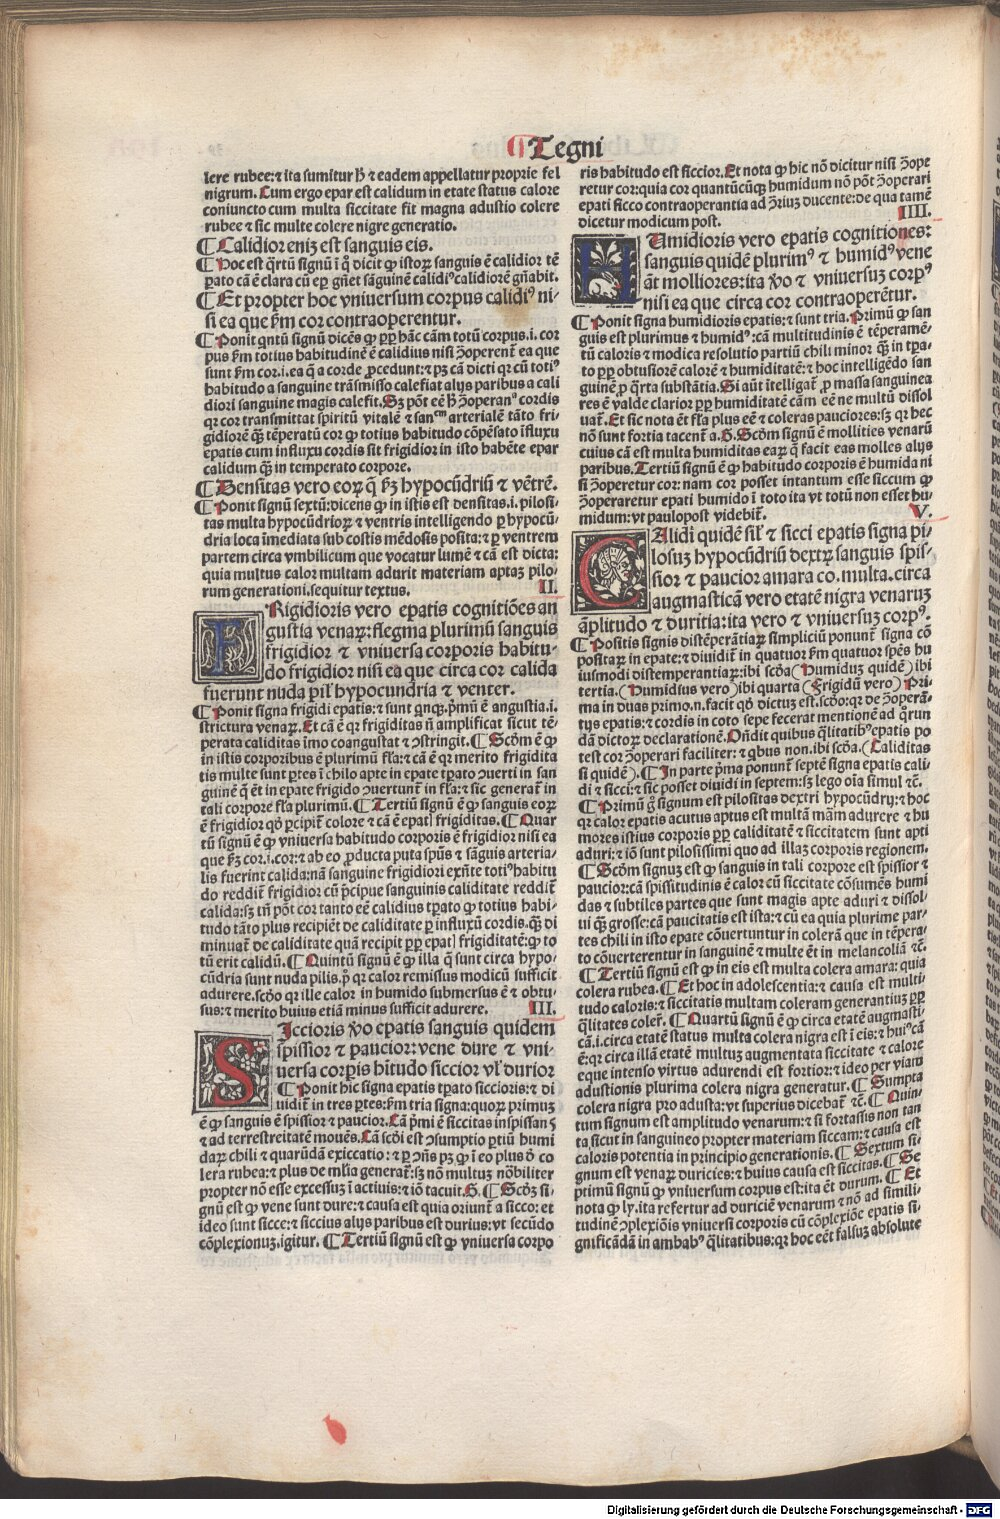 ¶ Tegni
lere rubee: ⁊ ita sumitur hˀ ⁊ eadem appellatur proprie fel
nigrum. Cum ergo epar est calidum in etate status calore
coniuncto cum multa siccitate fit magna adustio colere
rubee ⁊ sic multe colere nigre generatio.
¶ Calidior eniꝫ est sanguis eis.
¶ Hoc est q̈rtū signū i q̊ dicit ꝙ istoꝝ sanguis ē calidior tē
ꝑato cā ē clara cū eꝑ gn̄et sāguinē calidiꝰ calidiorē gn̄abit.
¶ Et propter hoc vniuersum corpus calidiꝰ ni-
si ea que ẜm cor contraoperentur.
¶ Ponit qntū signū dicēs ꝙ ꝓp hāc cām totū corpus.i. cor
pus ẜm totius habitudinē ē calidius nisi ꝯoperent̄ ea que
sunt ẜm cor.i. ea q̄ a corde ꝓcedunt: ⁊ pꝫ cā dicti qꝛ cū totiꝰ
habitudo a sanguine trāsmisso calefiat alijs paribus a cali
diori sanguine magis calefit. Sꝫ pōt eē hˀ ꝯoperanˢ cordis
qꝛ cor transmittat spiritū vitalē ⁊ sanᶜᵐ arterialē tāto fri-
gidiorē q̄ꝫ tēperatū cor ꝙ totius habitudo cōpēsato īfluxu
epatis cum influxu cordis sit frigidior in isto habēte epar
calidum q̄ꝫ in temperato corpore.
¶ Densitas vero eoꝝ q̄ ẜꝫ hypocūdriū ⁊ vētrē.
¶ Ponit signū sextū: dicens ꝙ in istis est densitas.i. pilosi-
tas multa hypocūdrioꝝ ⁊ ventris intelligendo ꝑ hypocū-
dria loca īmediata sub costis mēdosis posita: ⁊ ꝑ ventrem
partem circa vmbilicum que vocatur lumē ⁊ cā est dicta:
quia multus calor multam adurit materiam aptaꝫ pilo-
rum generationi. sequitur textus. II.
FRigidioris vero epatis cognitiōes an
gustia venaꝝ: flegma plurimū sanguis
frigidior ⁊ vniuersa corporis habitu-
do frigidior nisi ea que circa cor calida
fuerunt nuda pilˢ hypocundria ⁊ venter.
¶ Ponit signa frigidi epatis: ⁊ sunt qnqꝫ. p̄mū ē angustia.i.
strictura venaꝝ. Et cā ē qꝛ frigiditas n̄ amplificat sicut tē-
perata caliditas īmo coangustat ⁊ ꝯstringit. ¶ Scd̄m ē ꝙ
in istis corporibus ē plurimū fla: ⁊ cā ē qꝛ merito frigidita
tis multe sunt ꝑtes ī chilo apte in epate tꝑato ꝯuerti in san
guinē q̄ ēt in epate frigido ꝯuertunt̄ in fla: ⁊ sic generat̄ in
tali corpore fla plurimū. ¶ Tertiū signū ē ꝙ sanguis eoꝝ
ē frigidior qd̄ ꝑcipit̄ colore ⁊ cā ē epatꝭ frigiditas. ¶ Quar
tū signū ē ꝙ vniuersa habitudo corporis ē frigidior nisi ea
que ẜꝫ cor.i. cor: ⁊ ab eo ꝓducta puta sp̄us ⁊ sāguis arteria-
lis fuerint calida: nā sanguine frigidiori exn̄te totiꝰ habitu
do reddit̄ frigidior cū p̄cipue sanguinis caliditate reddit̄
calida: sꝫ tn̄ pōt cor tanto eē calidius tꝑato ꝙ totius habi-
tudo tāto plus recipiēt de caliditate ꝑ influxū cordis. q̄ꝫ di
minuat̄ de caliditate quā recipit ꝑp epatꝭ frigiditatē: ꝙ to
tū erit calidū. ¶ Quintū signū ē ꝙ illa q̄ sunt circa hypo-
cūdria sunt nuda pilis. p̄ qꝛ calor remissus modicū sufficit
adurere. scd̄o qꝛ ille calor in humido submersus ē ⁊ obtu-
sus: ⁊ merito huius etiā minus sufficit adurere. III.
SIccioris v̄o epatis sanguis quidem
spissior ⁊ paucior: vene dure ⁊ vni-
uersa corꝑis hitudo siccior vl̓ durior
¶ Ponit hic signa epatis tꝑato siccioris: ⁊ di
uidit̄ in tres ꝑtes: ẜm tria signa: quoꝝ primuꝫ
ē ꝙ sanguis ē spissior ⁊ paucior. Cā p̄mi ē siccitas inspissans
⁊ ad terrestreitatē mouēs. Cā scd̄i est ꝯsumptio ꝑtiū humi
daꝝ chili ⁊ quarūdā exiccatio: ⁊ ꝑ ꝯn̄s pꝫ ꝙ i eo plus ō co
lera rubea: ⁊ plus de mlīa generat̄: sꝫ nō multuꝫ nōbiliter
propter nō esse excessuꝫ ī actiuis: ⁊ iō tacuit. G. ¶ Scd̄ꝫ si-
gnū est ꝙ vene sunt dure: ⁊ causa est quia oriunt̄ a sicco: et
ideo sunt sicce: ⁊ siccius alijs paribus est durius: vt secūdo
cōplexionuꝫ. igitur. ¶ Tertiū signū est ꝙ vniuersa corpo
ris habitudo est siccior. Et nota ꝙ hic nō dicitur nisi ꝯope
retur cor: quia cor quantūcūqꝫ humidum nō pōt ꝯoperari
epati sicco contraoperantia ad ꝯriuꝫ ducente: de qua tamē
dicetur modicum post. IIII.
HUmidioris vero epatis cognitiones:
sanguis quidē plurimꝰ ⁊ humidꝰ vene
āt molliores: ita v̄o ⁊ vniuersuꝫ corpꝰ
nisi ea que circa cor contraoperētur.
¶ Ponit signa humidioris epatis: ⁊ sunt tria. Primū ꝙ san
guis est plurimus ⁊ humidꝰ: cā multitudinis ē tēperamē-
tū caloris ⁊ modica resolutio partiū chili minor q̄ꝫ in tꝑa-
to ꝑp obtusiorē calorē ⁊ humiditatē: ⁊ hoc intelligēdo san
guinē ꝓ q̄rta substātia. Si aūt ītelligat̄ ꝓ massa sanguinea
res ē valde clarior ꝑp humiditatē cām eē ne multū dissol
uat̄. Et sic nota ēt fla plus eē ⁊ coleras pauciores: sꝫ qꝛ hec
nō sunt fortia tacent̄ a. G. Scd̄m signū ē mollities venarū
cuius cā est multa humiditas eaꝝ q̄ facit eas molles alijs
paribus. Tertiū signū ē ꝙ habitudo corporis ē humida ni
si ꝯoperetur cor: nam cor posset intantum esse siccum ꝙ
ꝯoperaretur epati humido ī toto ita vt totū non esset hu-
midum: vt paulopost videbit̄. V.
CAlidi quidē sil̓ ⁊ sicci epatis signa pi-
losuꝫ hypocūdriū dextꝝ sanguis spis-
sior ⁊ paucior amara co. multa. circa
augmasticā vero etatē nigra venaruꝫ
āplitudo ⁊ duritia: ita vero ⁊ vniuersuꝫ corpꝰ.
¶ Positis signis distēperātiaꝝ simpliciū ponunt̄ signa cō
positaꝝ in epate: ⁊ diuidit̄ in quatuor ẜm quatuor spēs hu
iusmodi distemperantiaꝝ: ibi scd̄a (Humiduꝫ quidē) ibi
tertia. (Humidius vero) ibi quarta (Frigidū vero) Pri-
ma in duas primo. n. facit qd̄ dictuꝫ est. scd̄o: qꝛ de ꝯoperā-
tijs epatis: ⁊ cordis in toto sepe fecerat mentionē ad q̄run
dā dictoꝝ declarationē. Ondit quibus q̄litatibꝰ epatis po
test cor ꝯoperari faciliter: ⁊ qbus non. ibi scd̄a. (Caliditas
si quidē). ¶ In parte p̄ma ponunt̄ septē signa epatis cali-
di ⁊ sicci: ⁊ sic posset diuidi in septem: sꝫ lego oīa simul ⁊c̄.
¶ Primū g̊ signum est pilositas dextri hypocūdrij: ⁊ hoc
qꝛ calor epatis acutus aptus est multā mām adurere ⁊ hu
mores istius corporis ꝑp caliditatē ⁊ siccitatem sunt apti
aduri: ⁊ iō sunt pilosissimi quo ad illaꝫ corporis regionem.
¶ Scd̄m signuꝫ est ꝙ sanguis in tali corpore est spissior ⁊
paucior: cā spissitudinis ē calor cū siccitate cōsumēs humi
das ⁊ subtiles partes que sunt magis apte aduri ⁊ dissol-
ui q̄ꝫ grosse: cā paucitatis est ista: ⁊ cū ea quia plurime par-
tes chili in isto epate cōuertuntur in colerā que in tēpera-
to cōuerterentur in sanguinē ⁊ multe ēt in melancoliā ⁊c̄.
¶ Tertiū signū est ꝙ in eis est multa colera amara: quia
colera rubea. ¶ Et hoc in adolescentia: ⁊ causa est multi-
tudo caloris: ⁊ siccitatis multam coleram generantiuꝫ ꝑp
q̄litates coleꝝ. ¶ Quartū signū ē ꝙ circa etatē augmasti-
cā.i. circa etatē status multa colera nigra est ī eis: ⁊ huiꝰ cā
ē: qꝛ circa illā etatē multuꝫ augmentata siccitate ⁊ calore
eque intenso virtus adurendi est fortior: ⁊ ideo per viam
adustionis plurima colera nigra generatur. ¶ Sumpta
colera nigra pro adusta: vt superius dicebat̄ ⁊c̄. ¶ Quin-
tum signum est amplitudo venarum: ⁊ si fortassis non tan
ta sicut in sanguineo propter materiam siccam: ⁊ causa est
caloris potentia in principio generationis. ¶ Sextum si-
gnum est venaꝝ duricies: ⁊ huius causa est siccitas. ¶ Se
ptimū signū ꝙ vniuersum corpus est: ita ēt durum. ¶ Et
nota ꝙ ly. ita refertur ad duriciē venarum ⁊ nō ad simili-
tudinē ꝯplexiōis vniuersi corporis cū cōplexiōe epatis si-
gnificādā in ambabꝰ q̄litatibus: qꝛ hoc eēt falsuꝫ absolute
Digitalisierung gefördert durch die Deutsche Forschungsgemeinschaft - DFG